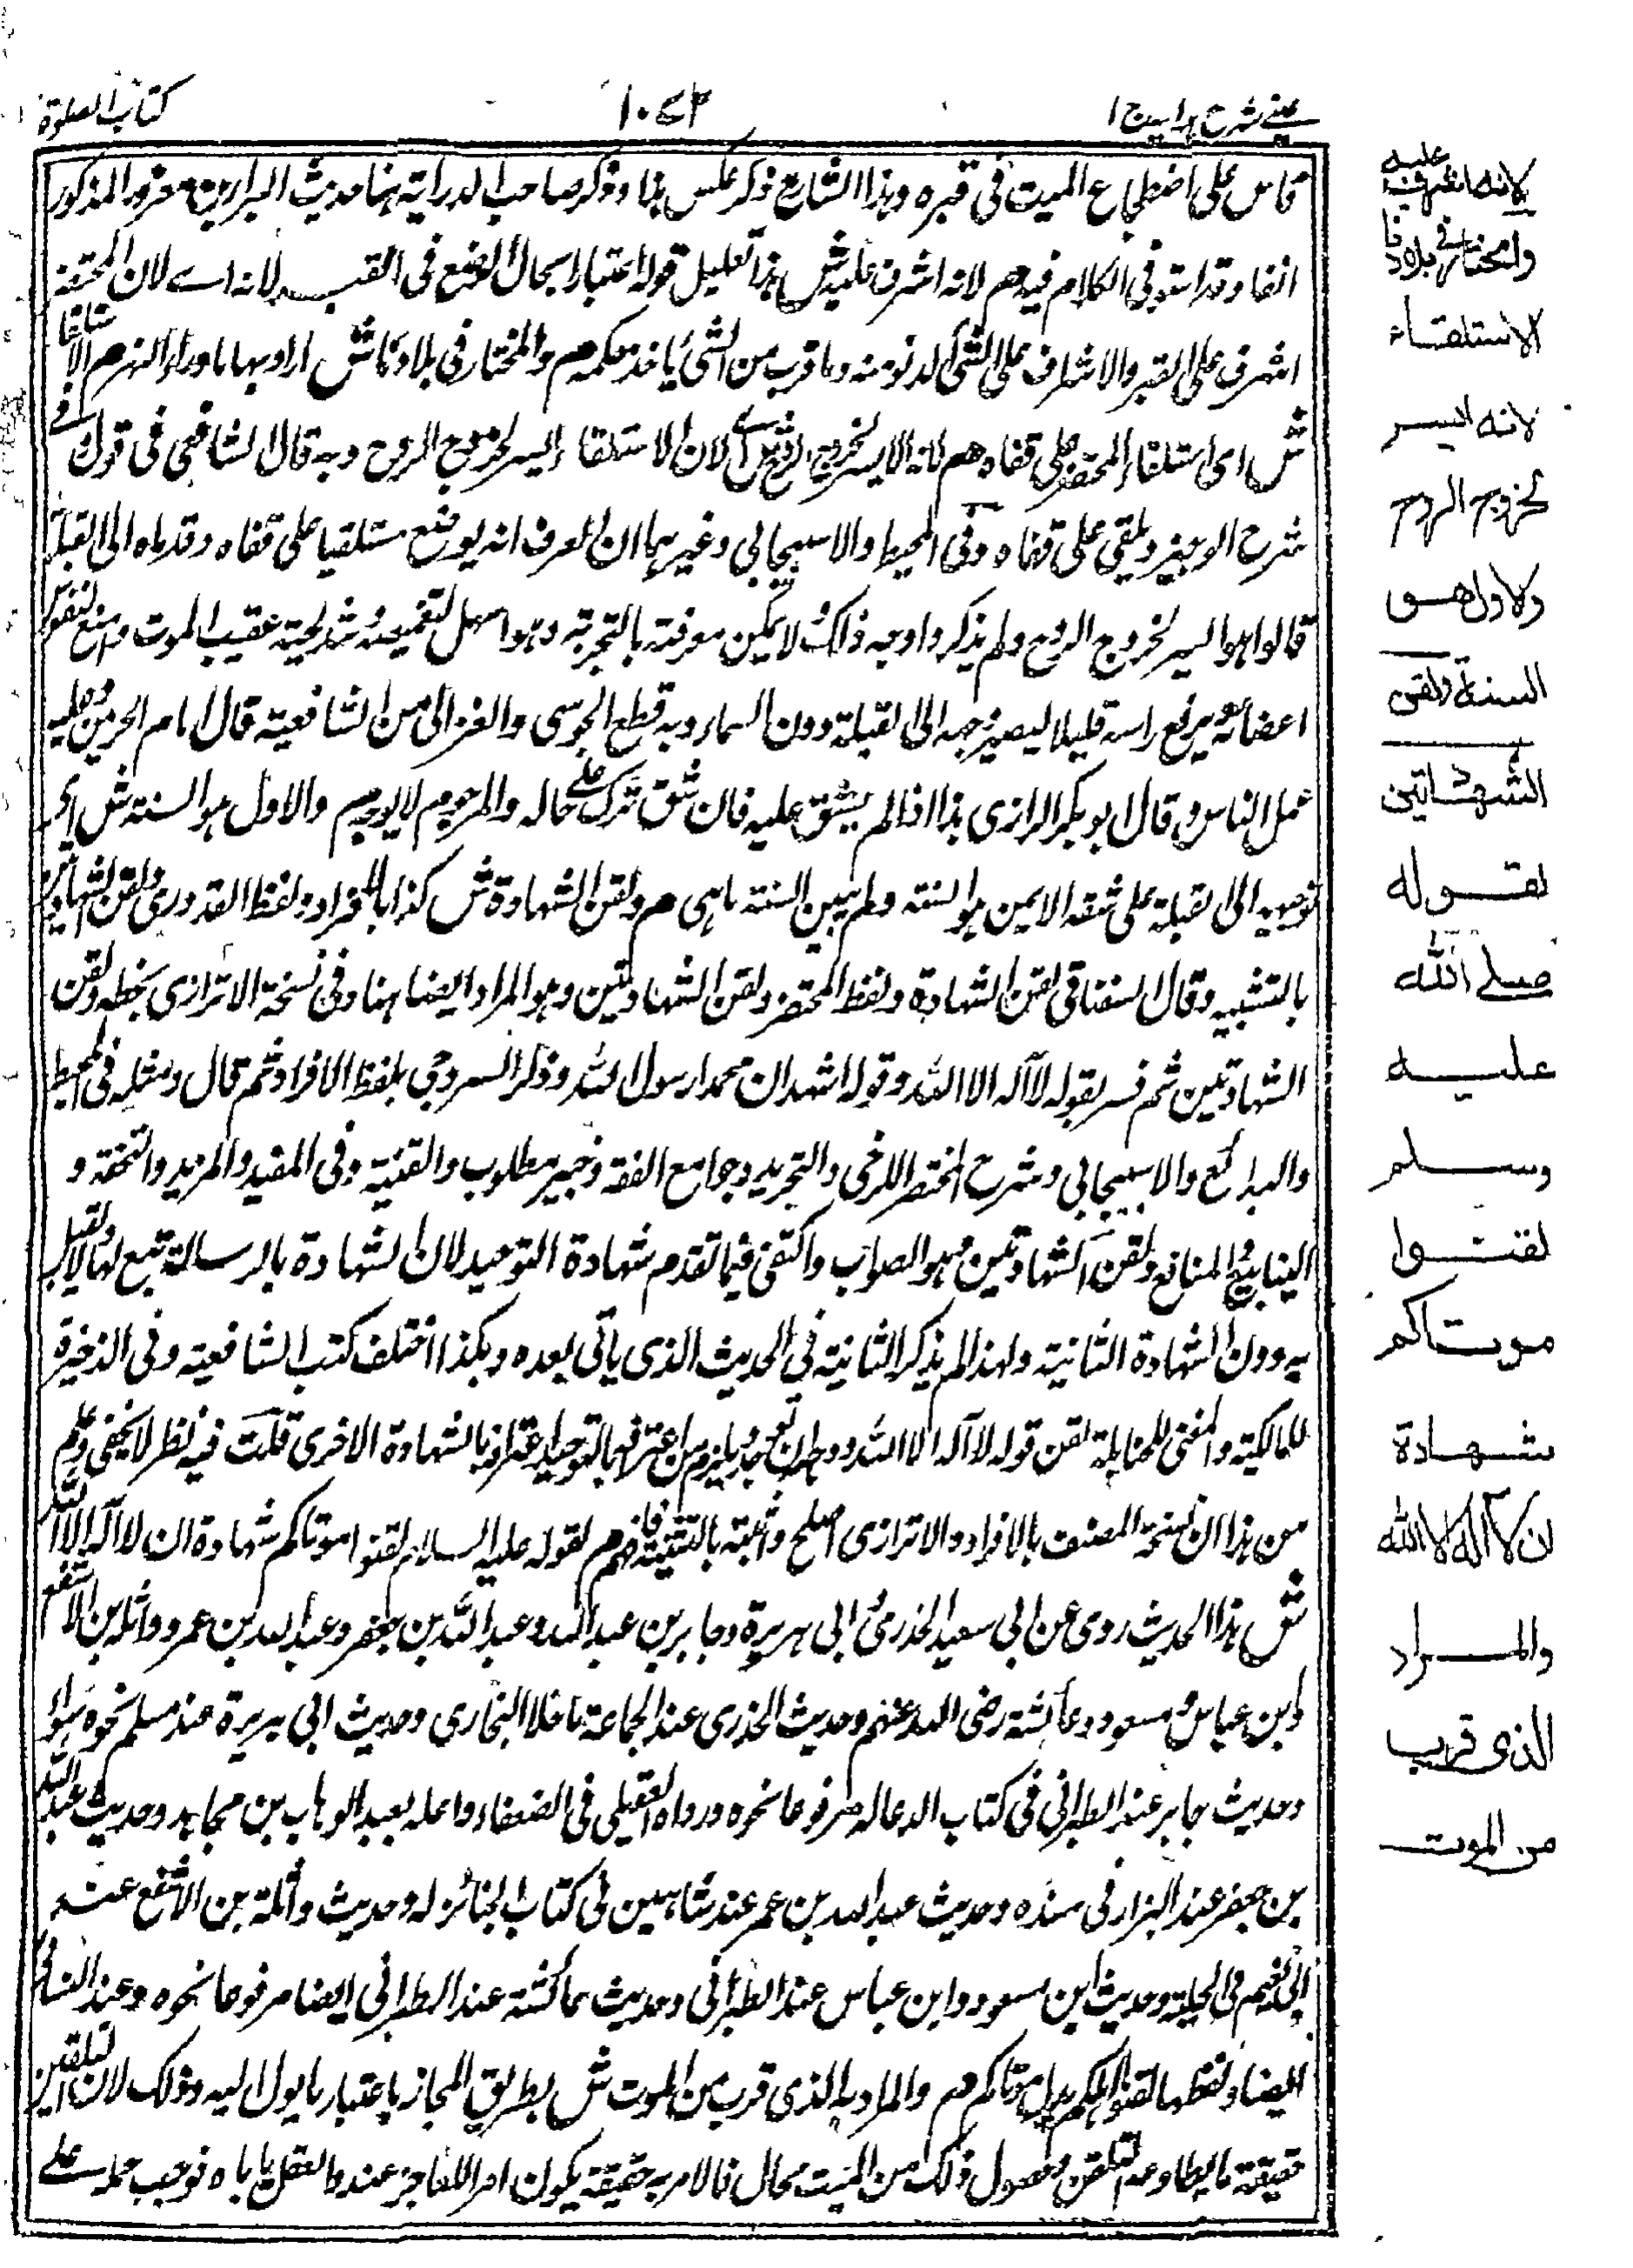 عينى شرح هدايه ج ١
١٠٧٣
كتاب الصلوة
قاس على اضطجاع الميت فى قبره وهذا الشارع ذكر عكس هذا وذكر صاحب الدراية هنا حديث البراء بن معرور المذكور
انفا وقد استوفى الكلام فيه م لانه اشرف عليه ش هذا تعليل قوله اعتبارا بحال الوضع فى القبر لانه اے لان المحتضر
اشرف على القبر والاشراف على الشئ الدنو منه وما قرب من الشئ ياخذ حكمه م والمختار فى بلادنا ش اراد بها ماوراء النهر م الاستلقاء
ش اى استلقاء المحتضر على قفاه م لانه الايسر لخروج الروح ش اے لان الاستلقاء ايسر لخروج الروح وبه قال الشافعى فى قول وفى
شرح الوجيز ويلقى على قفاه وفى المحيط والاسبيجابى وغيرهما ان العرف انه يوضع مستلقيا على قفاه وقدماه الى القبلة
قالوا هو ايسر لخروج الروح ولم يذكروا وجه ذلك لا يمكن معرفته بالتجربة وهو اسهل لتغميضه وشد لحيته عقيب الموت وامنع لتقوس
اعضائه ويرفع راسه قليلا ليصير وجهه الى القبلة دون السماء وبه قطع الجوسى والغزالى من الشافعية قال امام الحرمين وعليه
عمل الناس وقال ابو بكر الرازى هذا اذا لم يشق عليه فان شق ترك على حاله والمرجوم لا يوجه م والاول هو السنة ش اى
توجيهه الى القبلة على شقه الايمن هو السنة ولم يبين السنة ماهى م ولقن الشهادة ش كذا بالافراد ولفظ القدورى ولقن الشهادتين
بالتثنية وقال السغناقى لقن الشهادة ولفظ المختصر ولقن الشهادتين وهو المراد ايضا هنا وفى نسخة الاترازى بخطه ولقن
الشهادتين ثم فسر بقوله لا آله الا الله وقوله اشهد ان محمدا رسول الله وذكر السروجى بلفظ الافراد ثم قال ومثله فى المحيط
والبدائع والاسبيجابى وشرح المختصر الكرخى والتجريد وجوامع الفقه وخير مطلوب والقنية وفى المفيد والمزيد والتحفة و
الينابيع والمنافع ولقن الشهادتين وهو الصواب واكتفى فيما تقدم شهادة التوحيد لان الشهادة بالرسالة تبع لها ولا يقبل
به دون الشهادة الثانية ولهذا لم يذكر الثانية فى الحديث الذى ياتى بعده وهكذا اختلف كتب الشافعية وفى الذخيرة
للمالكية والمغنى للحنابلة لقن قوله لا آله الا الله يلزم من اعترافه بالتوحيد اعترافه بالشهادة الاخرى قلت فيه نظر لا يخفى وعلم
من هذا ان نسخة المصنف بالافراد والاترازى اصلح واثبته بالتثنية فافهم م لقوله عليه السلام لقنوا موتاكم شهادة ان لا آله الا الله
ش هذا الحديث روى عن ابى سعيد الخدرى وابى هريرة وجابر بن عبد الله وعبد الله بن جعفر وعبد الله بن عمر وواثلة بن الاسقع
وابن عباس و مسعود وعائشة رضى الله عنهم وحديث الخدرى عند الجماعة ما خلا البخارى وحديث ابى هريرة عند مسلم نحوه سواء
وحديث جابر عند الطبرانى فى كتاب الدعاء له مرفوعا نحوه ورواه العقيلى فى الضعفاء واعله بعبد الوهاب بن مجاهد وحديث عبد الله
بن جعفر عند البزار فى مسنده وحديث عبد الله بن عمر عند شاهين فى كتاب الجنائز له وحديث واثلة بن الاسقع عند
ابى نعيم فى الحلية وحديث ابن مسعود وابن عباس عند الطبرانى وحديث عائشة عند الطبرانى ايضا مرفوعا نحوه وعند النسائى
ايضا ولفظها لقنوا هلكاكم بدل موتاكم م والمراد به الذى قرب من الموت ش بطريق المجاز باعتبار ما يول اليه وذلك لان التلقين
حقيقة ما وحصول ذلك من الميت محال فالامر به حقيقة يكون امرا للعاجز عنده والعقل ياباه فوجب حمله على
لانه اشرف عليه
والمختار فى بلادنا
الاستلقاء
لانه ايسر
لخروج الروح
والاول هو
السنة ولقن
الشهادتين
لقوله
صلى الله
عليه
وسلم
لقنوا
موتاكم
شهادة
ان لا آله الا الله
والمراد
الذى قرب
من الموت